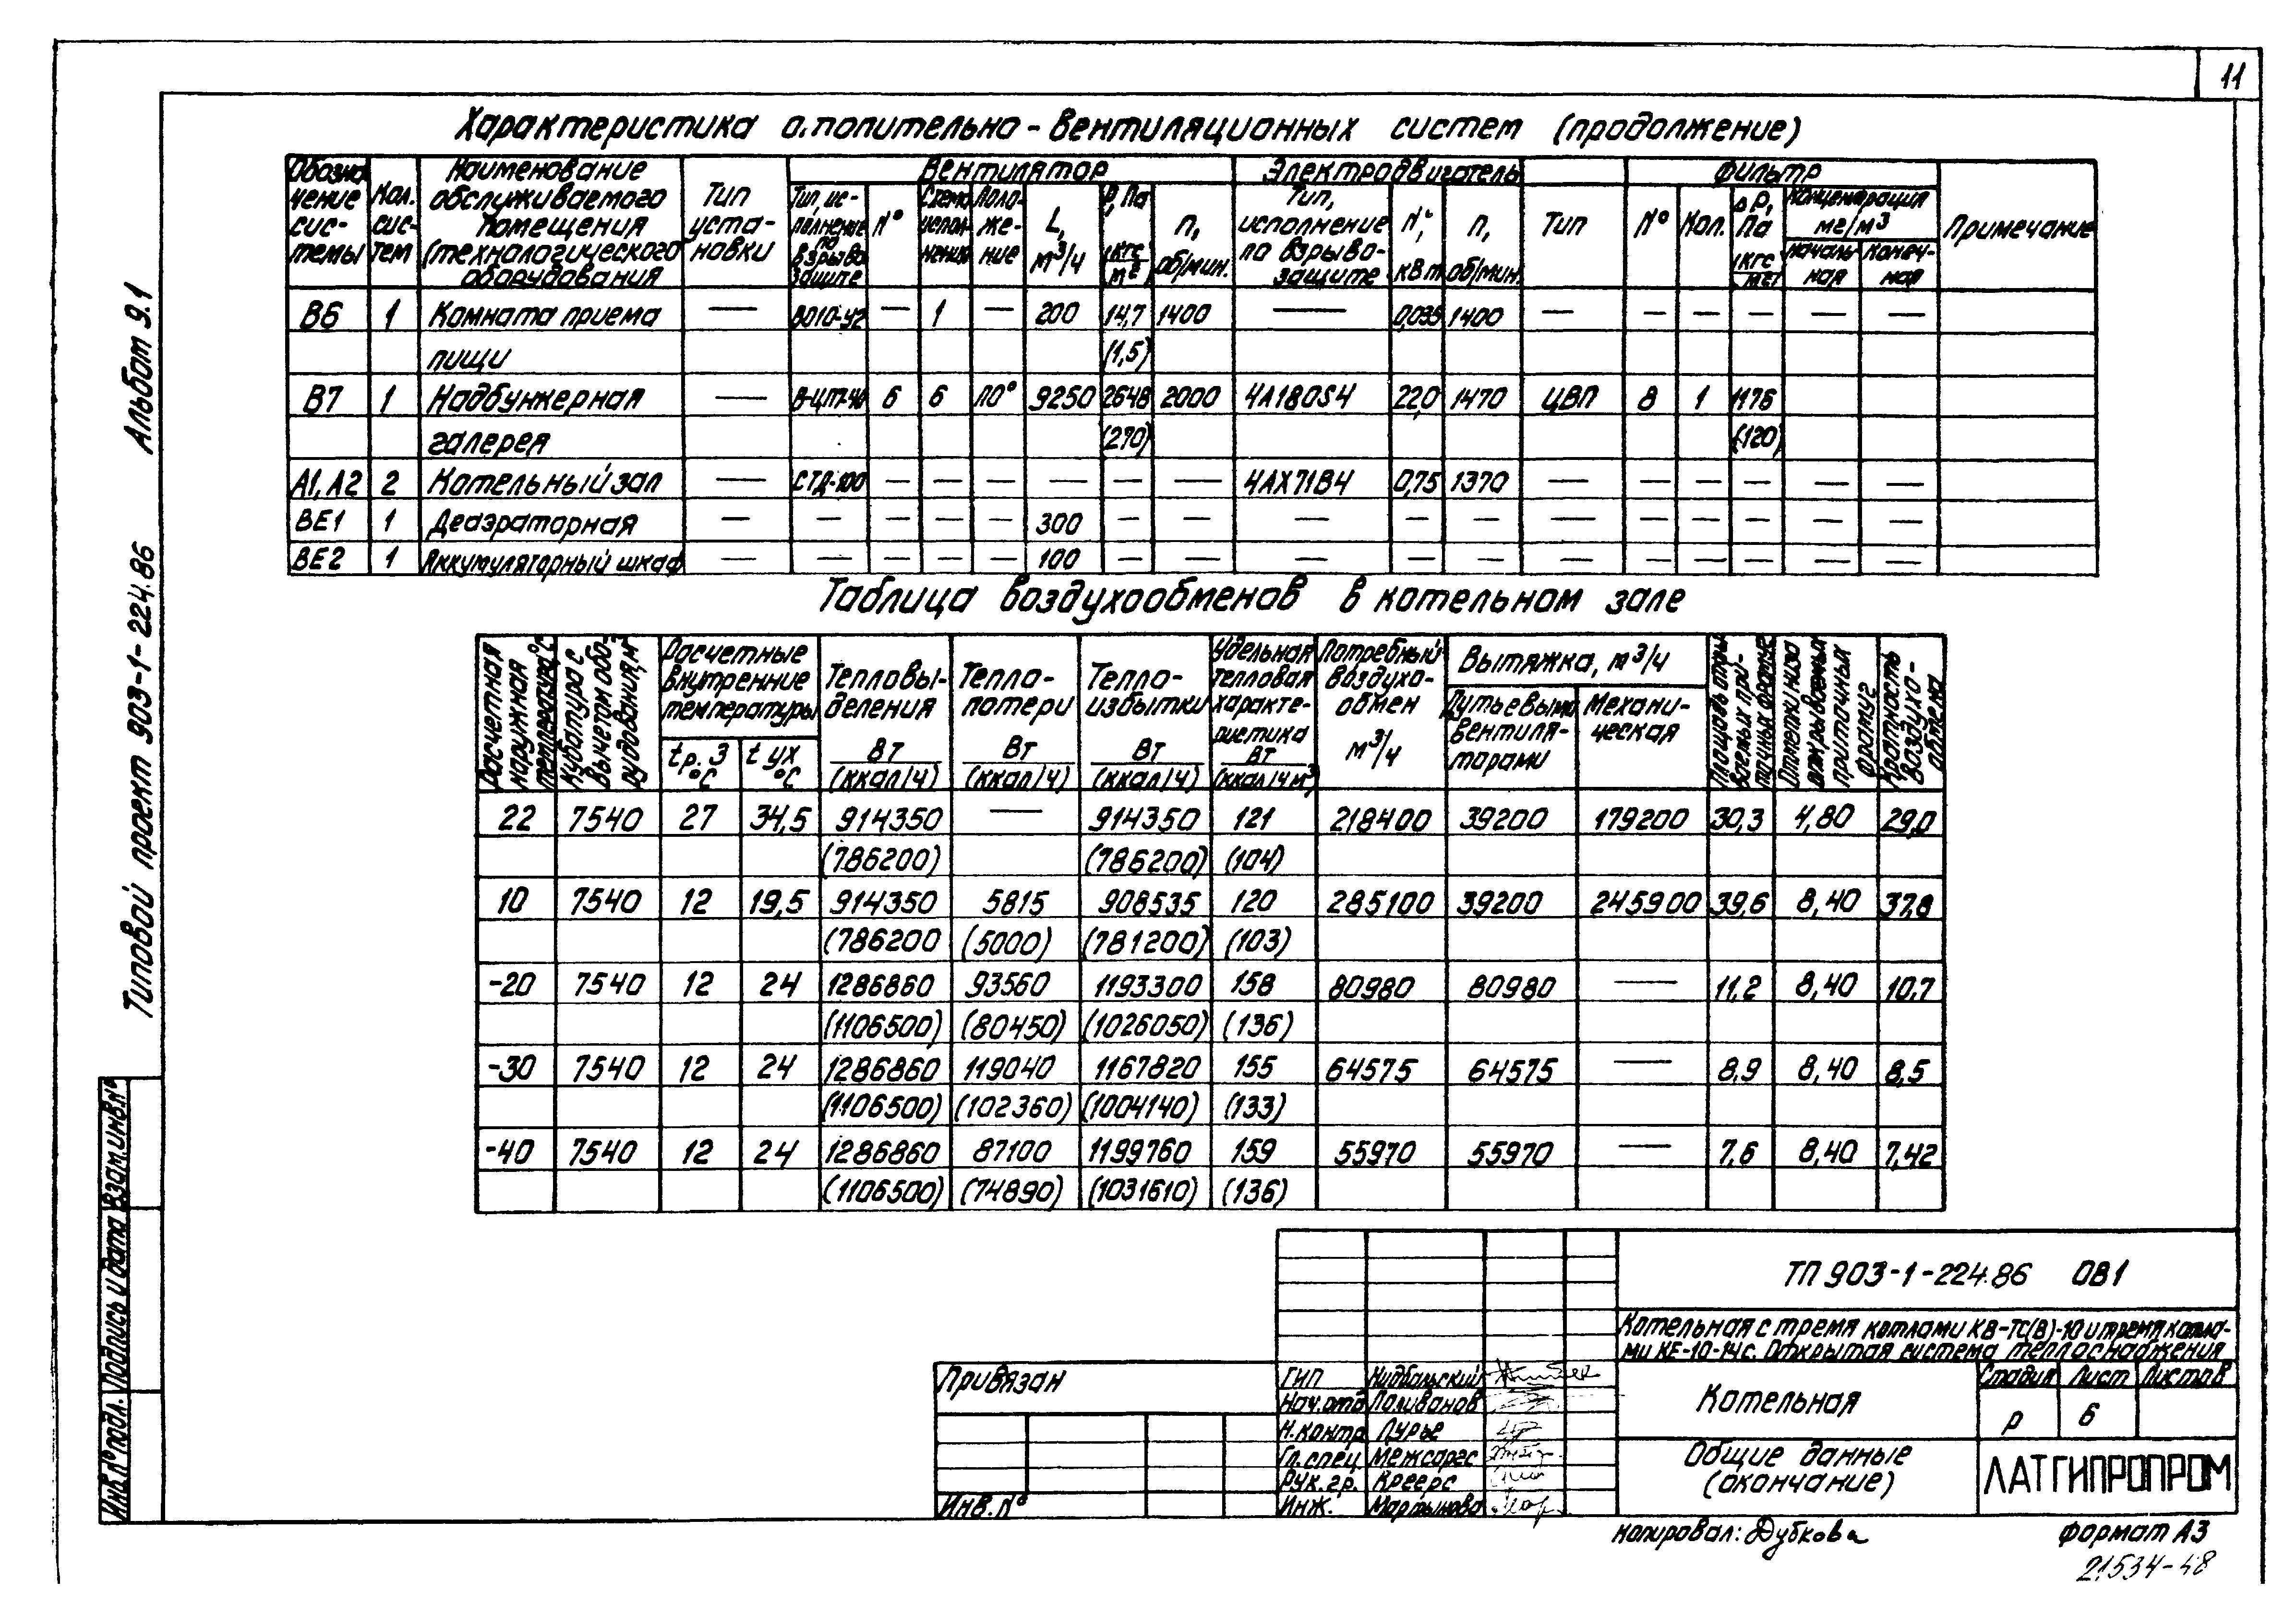 11
Альбом 9.1
Типовой проект 903-1-224.86
Инв.№ подл. Подпись и дата Взам.инв.№
Характеристика отопительно-вентиляционных систем (продолжение)
Обозначение системы | Кол. систем | Наименование обслуживаемого помещения (технологического оборудования | Тип установки | Вентилятор | Электродвигатель | Фильтр | Примечание
Тип, исполнение по взрывозащите | № | Схема исполнения | Положение | L, м³/ч | P, Па (кгс/м²) | n, об/мин. | Тип, исполнение по взрывозащите | N, кВт | n, об/мин. | Тип | № | Кол. | ΔP, Па (кгс/м²) | Концентрация мг/м³
начальная | конечная
В6 | 1 | Комната приема | — | ВО10-У2 | — | 1 | — | 200 | 14,7 | 1400 | — | 0,035 | 1400 | — | — | — | — | — | —
пищи | (1,5)
В7 | 1 | Надбункерная | — | В-ЦП7-40 | 6 | 6 | Л0° | 9250 | 2648 | 2000 | 4А180S4 | 22,0 | 1470 | ЦВП | 8 | 1 | 1176
галерея | (270) | (120)
А1, А2 | 2 | Котельный зал | — | СТД-300 | — | — | — | — | — | — | 4АХ71В4 | 0,75 | 1370 | — | — | — | — | — | —
ВЕ1 | 1 | Деаэраторная | — | — | — | — | — | 300 | — | — | — | — | — | — | — | — | — | — | —
ВЕ2 | 1 | Аккумуляторный шкаф | — | — | — | — | — | 100 | — | — | — | — | — | — | — | — | — | — | —
Таблица воздухообменов в котельном зале
Расчетная наружная температура °С | Кубатура с вычетом оборудования, м³ | Расчетные внутренние температуры | Тепловыделения Вт (ккал/ч) | Теплопотери Вт (ккал/ч) | Теплоизбытки Вт (ккал/ч) | Удельная тепловая характеристика Вт (ккал/ч м³) | Потребный воздухообмен м³/ч | Вытяжка, м³/ч | Площадь открываемых приточных фрамуг | Отметки низа открываемых приточных фрамуг | Кратность воздухообмена
tр.з °С | t ух °С | Дутьевыми вентиляторами | Механическая
22 | 7540 | 27 | 34,5 | 914350 | — | 914350 | 121 | 218400 | 39200 | 179200 | 30,3 | 4,80 | 29,0
(786200) | (786200) | (104)
10 | 7540 | 12 | 19,5 | 914350 | 5815 | 908535 | 120 | 285100 | 39200 | 245900 | 39,6 | 8,40 | 37,8
(786200 | (5000) | (781200) | (103)
-20 | 7540 | 12 | 24 | 1286860 | 93560 | 1193300 | 158 | 80980 | 80980 | — | 11,2 | 8,40 | 10,7
(1106500) | (80450) | (1026050) | (136)
-30 | 7540 | 12 | 24 | 1286860 | 119040 | 1167820 | 155 | 64575 | 64575 | — | 8,9 | 8,40 | 8,5
(1106500) | (102360) | (1004140) | (133)
-40 | 7540 | 12 | 24 | 1286860 | 87100 | 1199760 | 159 | 55970 | 55970 | — | 7,6 | 8,40 | 7,42
(1106500) | (74890) | (1031610) | (136)
ТП 903-1-224.86 ОВ1
Котельная с тремя котлами КВ-ТС(В)-10 и тремя котла-
ми КЕ-10-14с. Открытая система теплоснабжения
Привязан
Инв.№
ГИП
Нач.отд Поливанов
Н.контр Лурье
Гл.спец. Межсаргс
Рук.гр. Креерс
Инж. Мартынова
Котельная
Стадия Лист Листов
Р 6
Общие данные
(окончание)
ЛАТГИПРОПРОМ
копировал: Дубкова
формат А3
21534-48